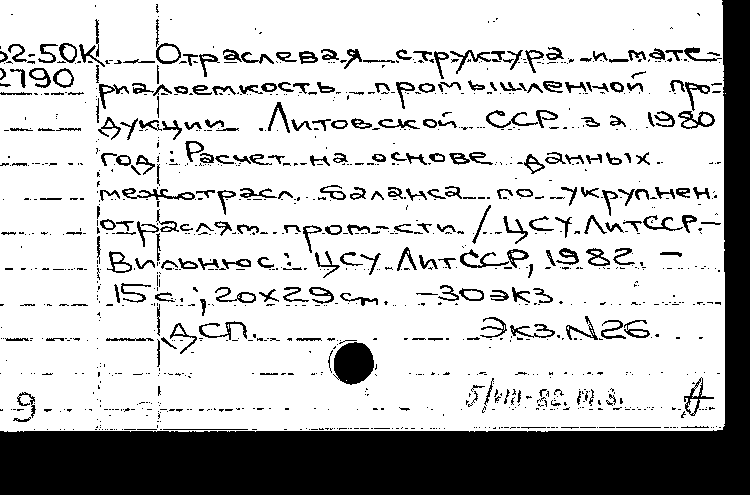 82-50К Отраслевая структура и мате-
2790 риалоемкость промышленной про-
дукции Литовской ССР за 1980
год: Расчет на основе данных
межотрасл. баланса по укрупнен.
отраслям пром-сти / ЦСУ ЛитССР.-
Вильнюс: ЦСУ ЛитССР, 1982. -
15 с.; 20х29 см. -30 экз.
ДСП. Экз. N26.
9 5/VIII-82. т.з.